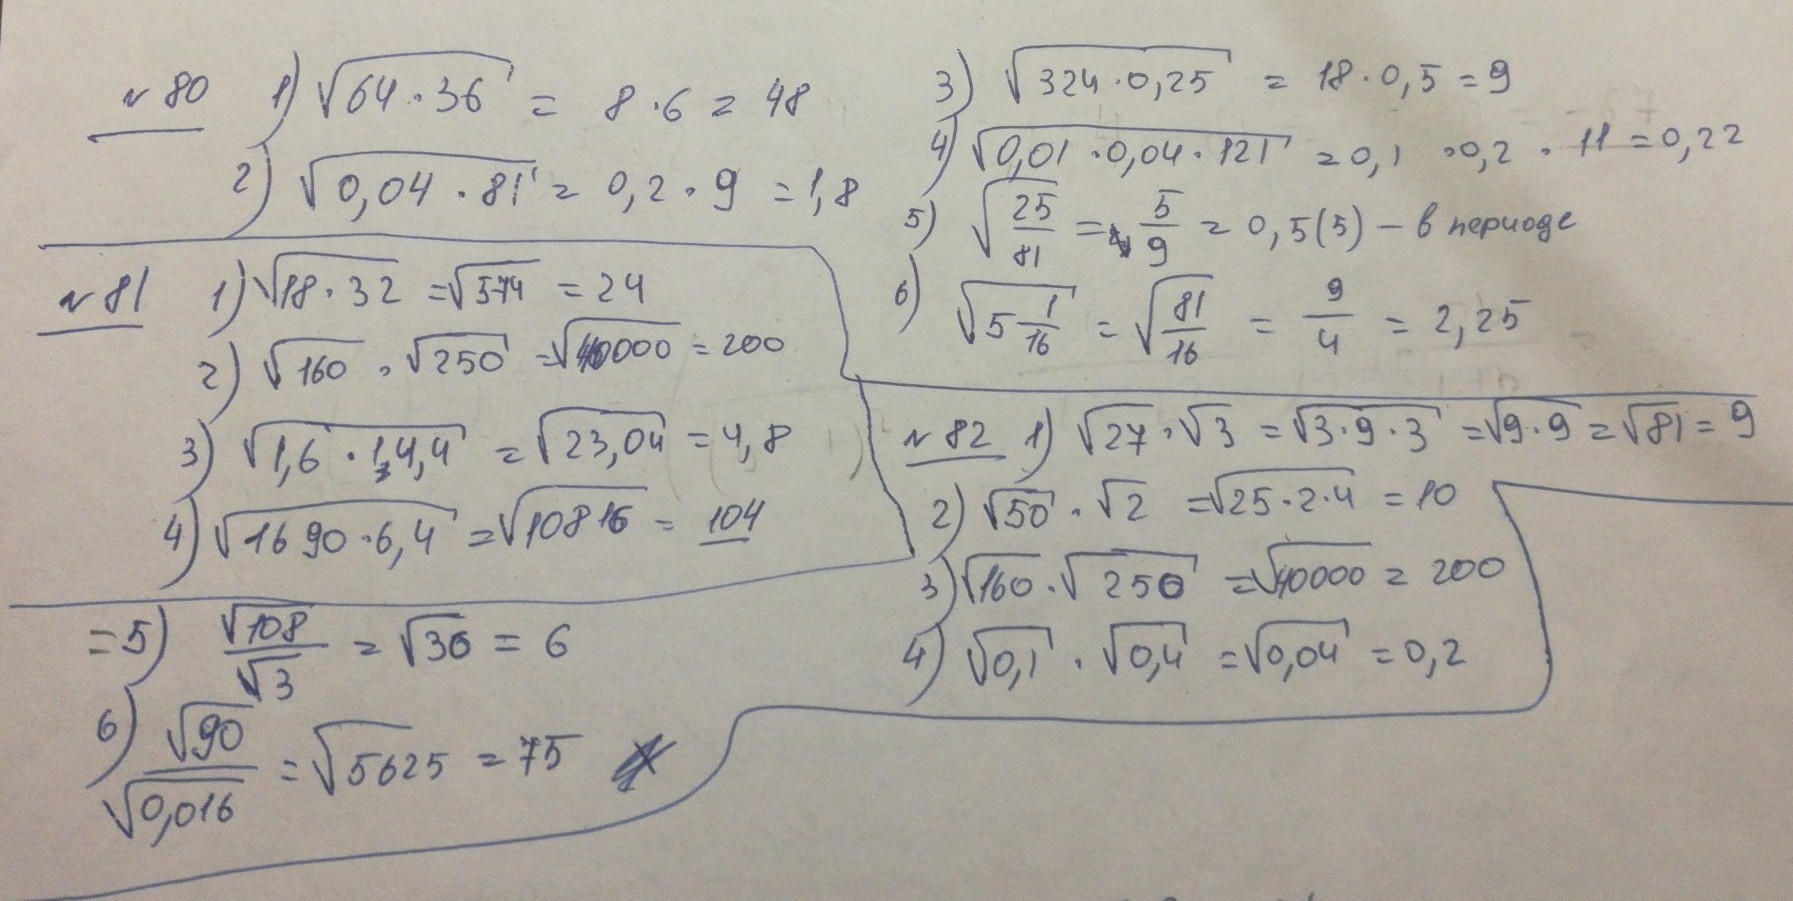 №80 1) √(64·36) = 8·6 = 48
2) √(0,04·81) = 0,2·9 = 1,8
3) √(324·0,25) = 18·0,5 = 9
4) √(0,01·0,04·121) = 0,1·0,2·11 = 0,22
5) √(25/81) = 5/9 = 0,5(5) – в периоде
6) √(5 1/16) = √(81/16) = 9/4 = 2,25
№81 1) √(18·32) = √574 = 24
2) √160 · √250 = √40000 = 200
3) √(1,6·14,4) = √23,04 = 4,8
4) √(1690·6,4) = √10816 = 104
№82 1) √27·√3 = √(3·9·3) = √(9·9) = √81 = 9
2) √50 · √2 = √(25·2·4) = 10
3) √160 · √250 = √40000 = 200
4) √0,1 · √0,4 = √0,04 = 0,2
=5) √108/√3 = √36 = 6
6) √90/√0,016 = √5625 = 75